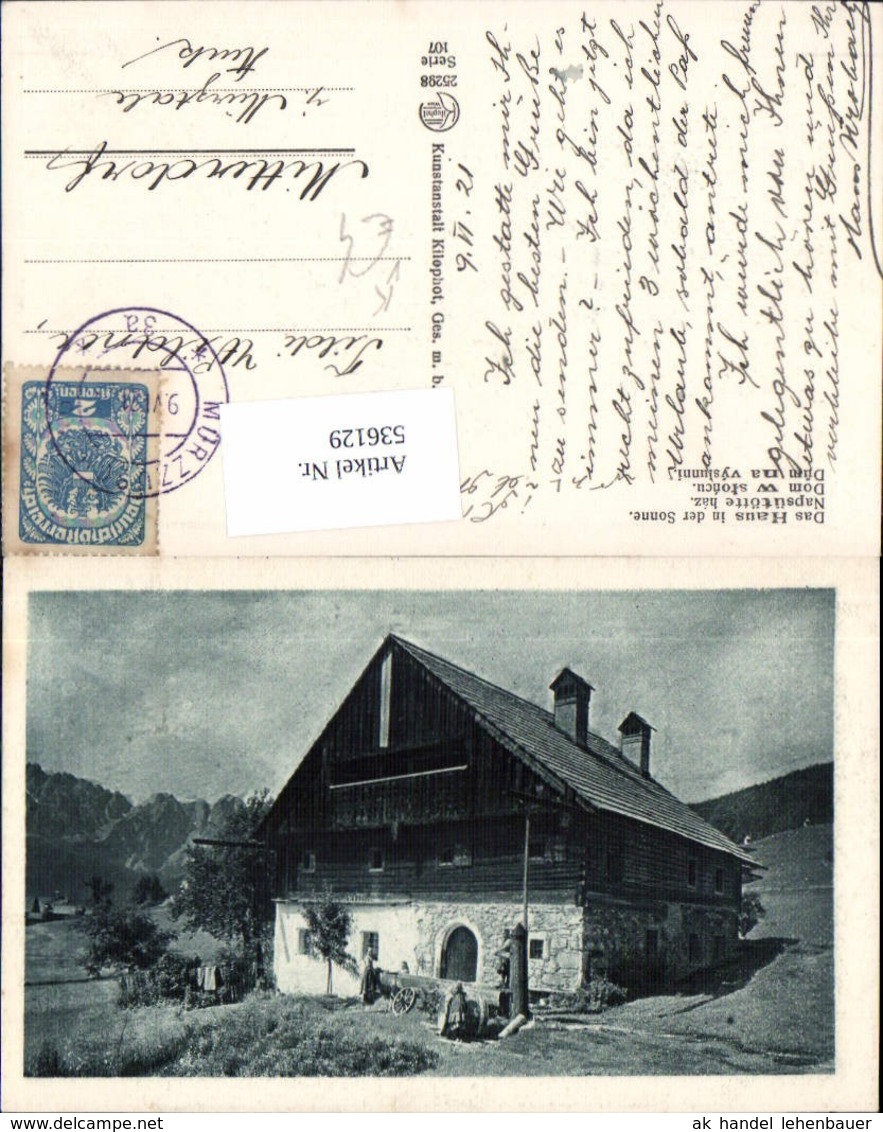 Das Haus in der Sonne.
Napsütötte ház.
Dom w słońcu.
Dům na výsluní.
9. VI. 21
Ich gestatte mir Ih-
nen die besten Grüße
zu senden. – Wie geht es
immer? – Ich bin jetzt
recht zufrieden, da ich
meinen 3 wöchentlichen
Urlaub, sobald der Paß
ankommt, antrete.
Ich würde mich freuen
gelegentlich von Ihnen
etwas zu hören und
verbleibe mit Grüßen Ihr
Hans
Kunstanstalt Kilophot, Ges. m. b.
Kilophot
Wien
25298
Serie
107
2 Kronen
Deutschösterreich
MÜRZZU
9. VI 21
3a
Mitterndorf
i. Mürztale
Artikel Nr.
536129
ak handel lehenbauer